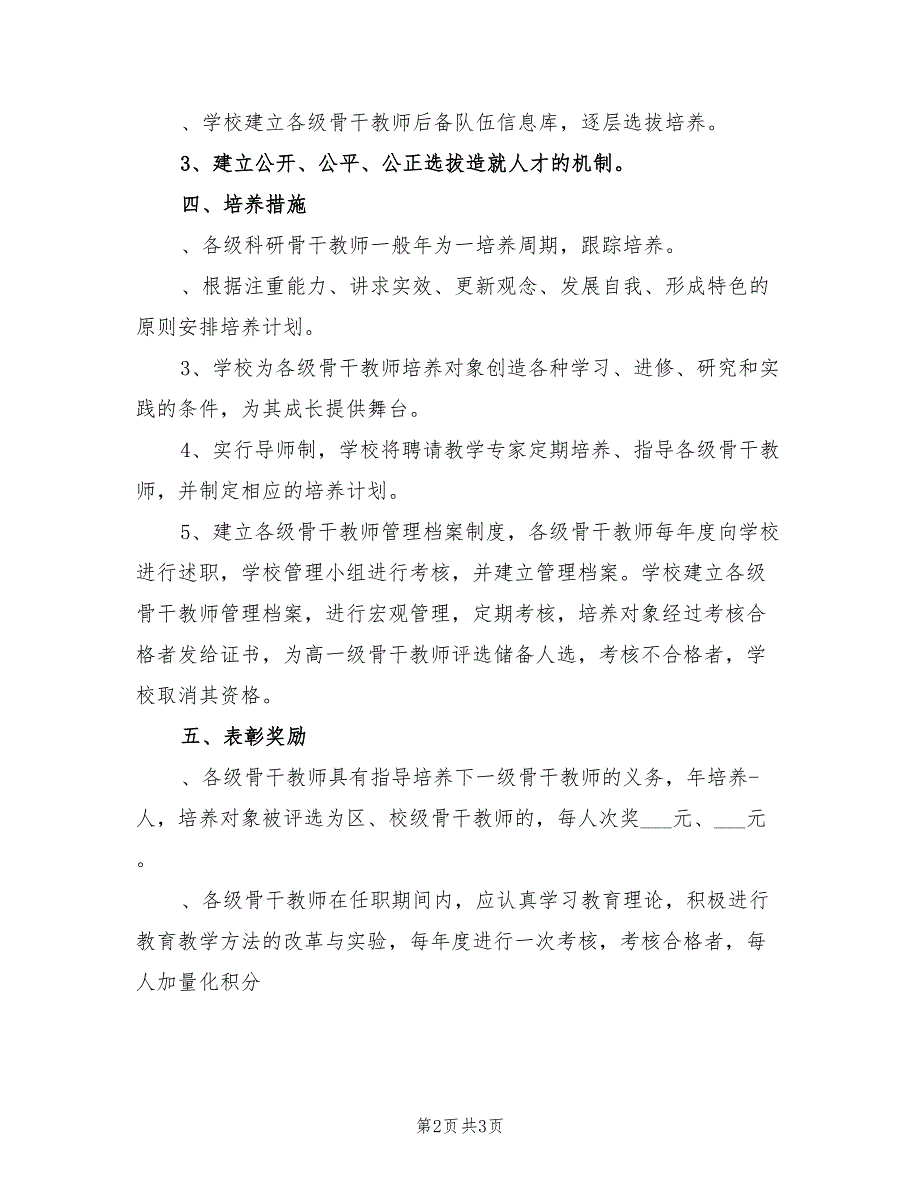 、学校建立各级骨干教师后备队伍信息库，逐层选拔培养。
3、建立公开、公平、公正选拔造就人才的机制。
四、培养措施
、各级科研骨干教师一般年为一培养周期，跟踪培养。
、根据注重能力、讲求实效、更新观念、发展自我、形成特色的
原则安排培养计划。
3、学校为各级骨干教师培养对象创造各种学习、进修、研究和实
践的条件，为其成长提供舞台。
4、实行导师制，学校将聘请教学专家定期培养、指导各级骨干教
师，并制定相应的培养计划。
5、建立各级骨干教师管理档案制度，各级骨干教师每年度向学校
进行述职，学校管理小组进行考核，并建立管理档案。学校建立各级
骨干教师管理档案，进行宏观管理，定期考核，培养对象经过考核合
格者发给证书，为高一级骨干教师评选储备人选，考核不合格者，学
校取消其资格。
五、表彰奖励
、各级骨干教师具有指导培养下一级骨干教师的义务，年培养-
人，培养对象被评选为区、校级骨干教师的，每人次奖___元、___元
。
、各级骨干教师在任职期间内，应认真学习教育理论，积极进行
教育教学方法的改革与实验，每年度进行一次考核，考核合格者，每
人加量化积分
第2页共3页